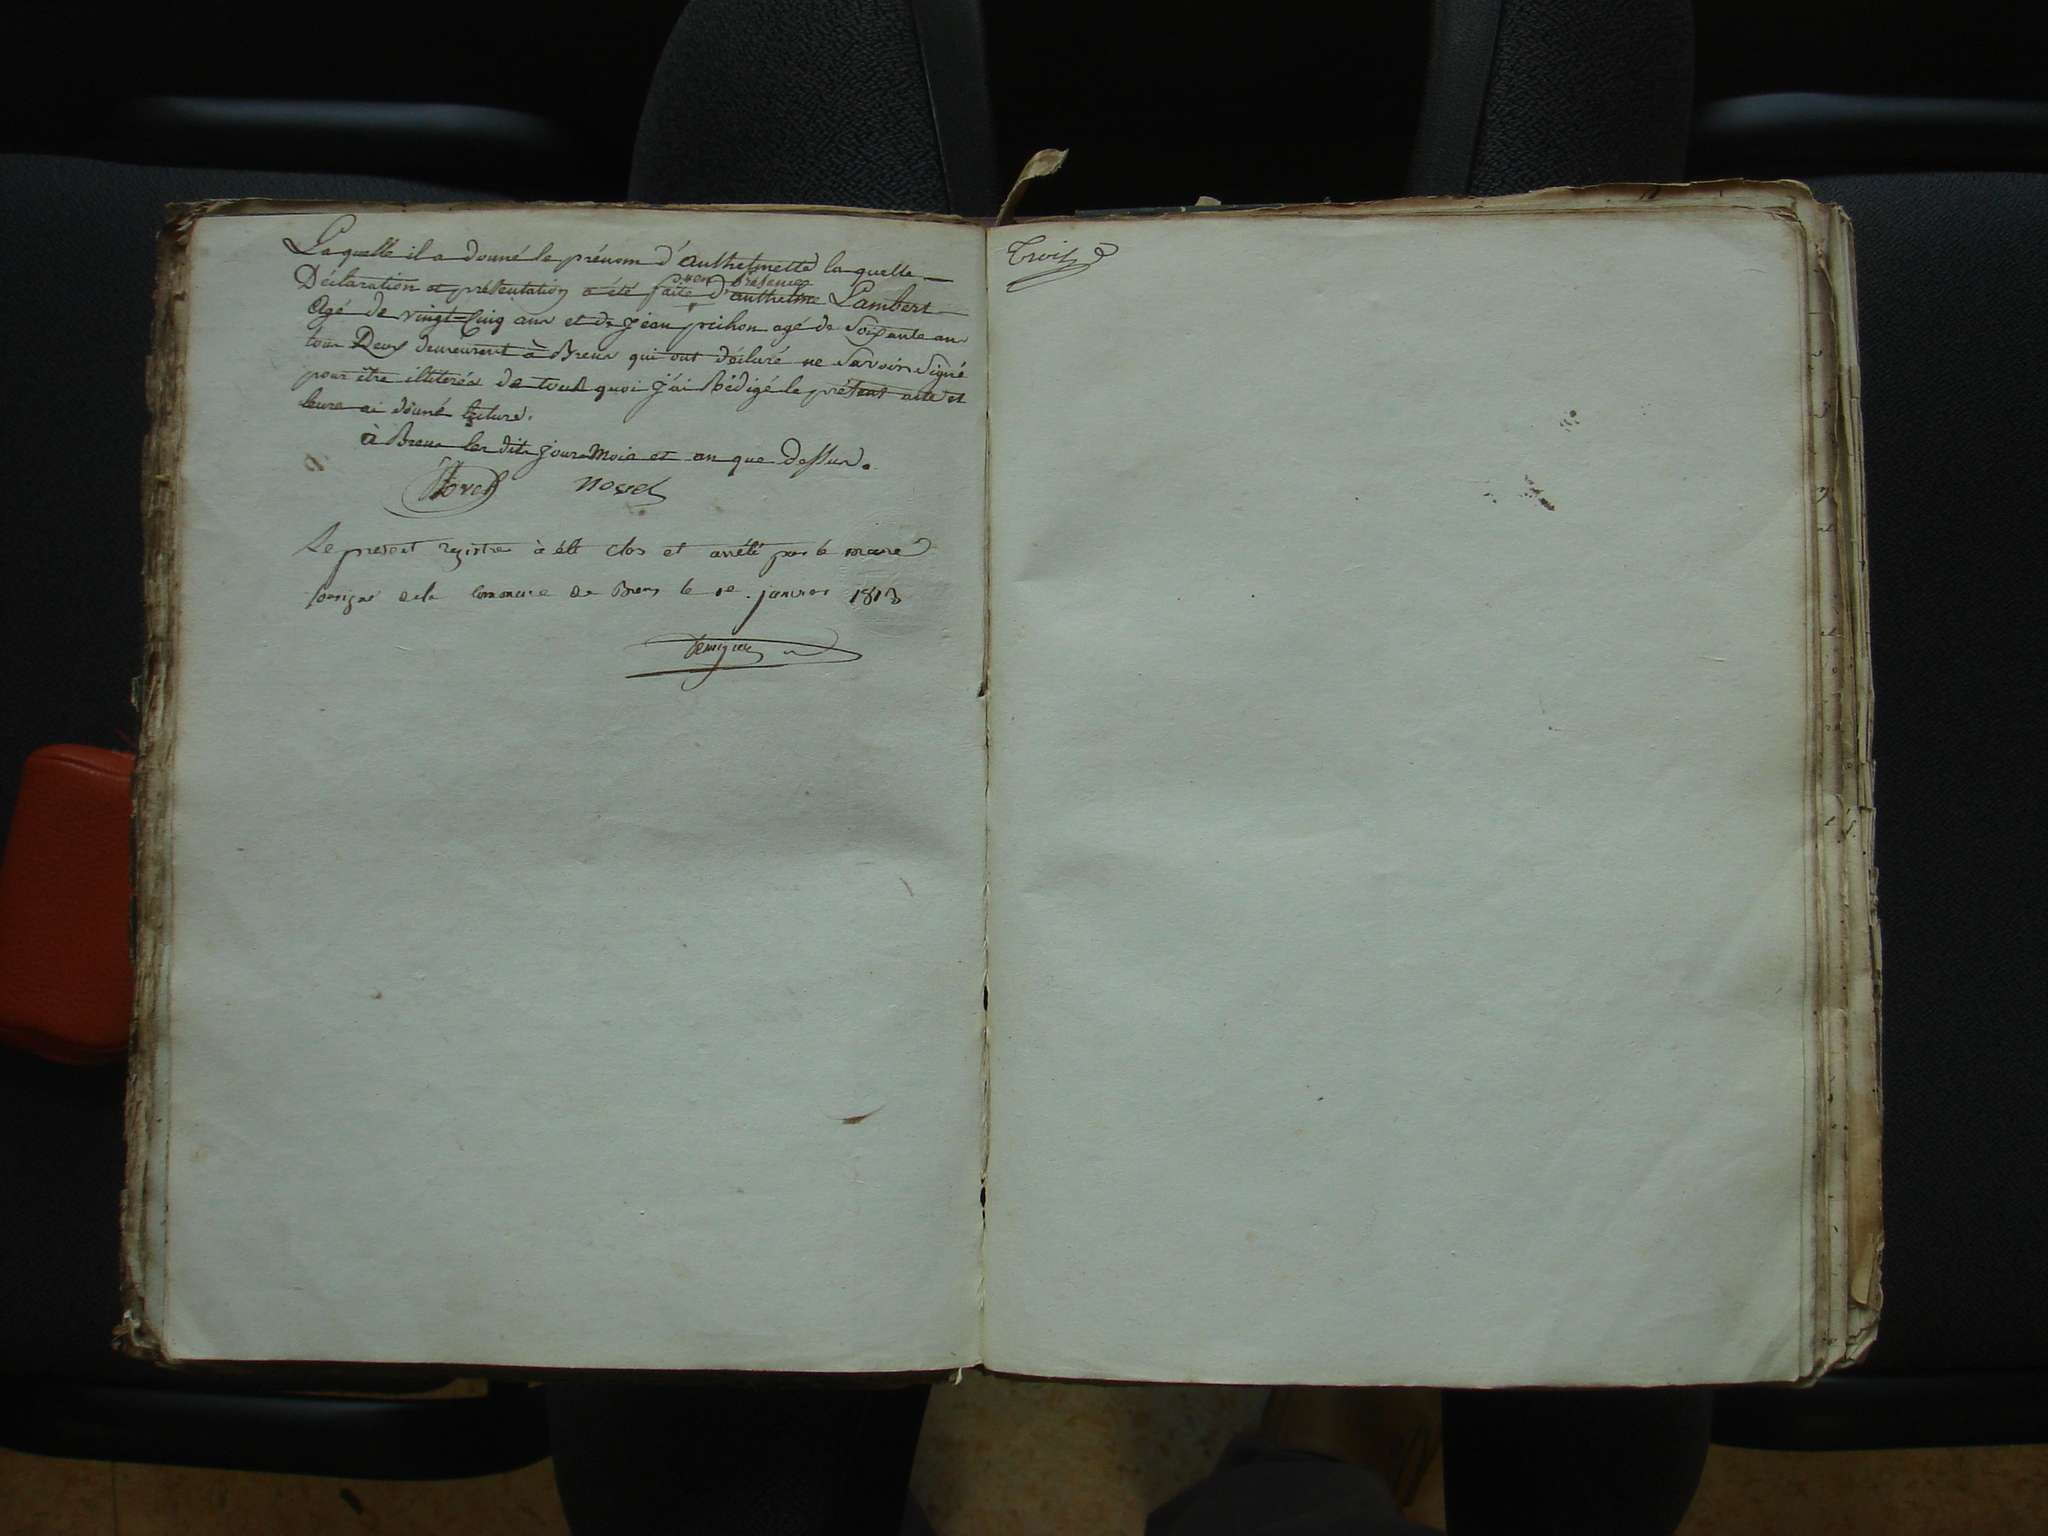 Laquelle il a donné le prénom d'anthelmette laquelle
Déclaration et présentation a été faite en présence d'anthelme Lambert
agé de vingt-Cinq ans et de Jean pichon agé de Soixante ans
tous Deux demeurent à Brens qui ont déclaré ne Savoir Signé
pour être illiterés de tout quoi j'ai Rédigé le présent acte et
leurs ai donné lecture.
à Brens les dits jours Mois et an que dessus.
Novel
Le present registre à été clos et arrêté par le maire
sousigné de la commune de Brens le 1er janvier 1813
Trois